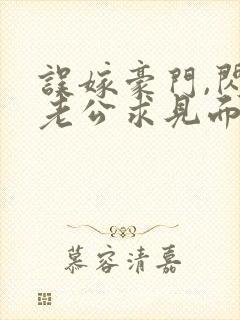 誤嫁豪門,閃
老公求見而
慕容清嘉